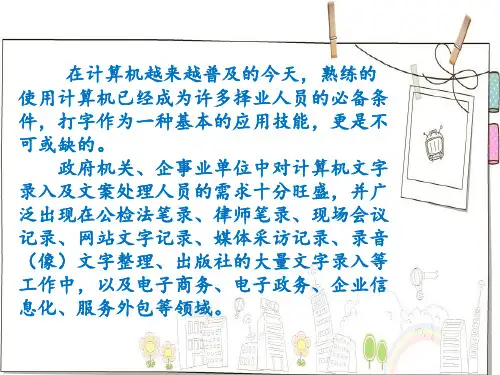 在计算机越来越普及的今天，熟练的
使用计算机已经成为许多择业人员的必备条
件，打字作为一种基本的应用技能，更是不
可或缺的。
政府机关、企事业单位中对计算机文字
录入及文案处理人员的需求十分旺盛，并广
泛出现在公检法笔录、律师笔录、现场会议
记录、网站文字记录、媒体采访记录、录音
（像）文字整理、出版社的大量文字录入等
工作中，以及电子商务、电子政务、企业信
息化、服务外包等领域。